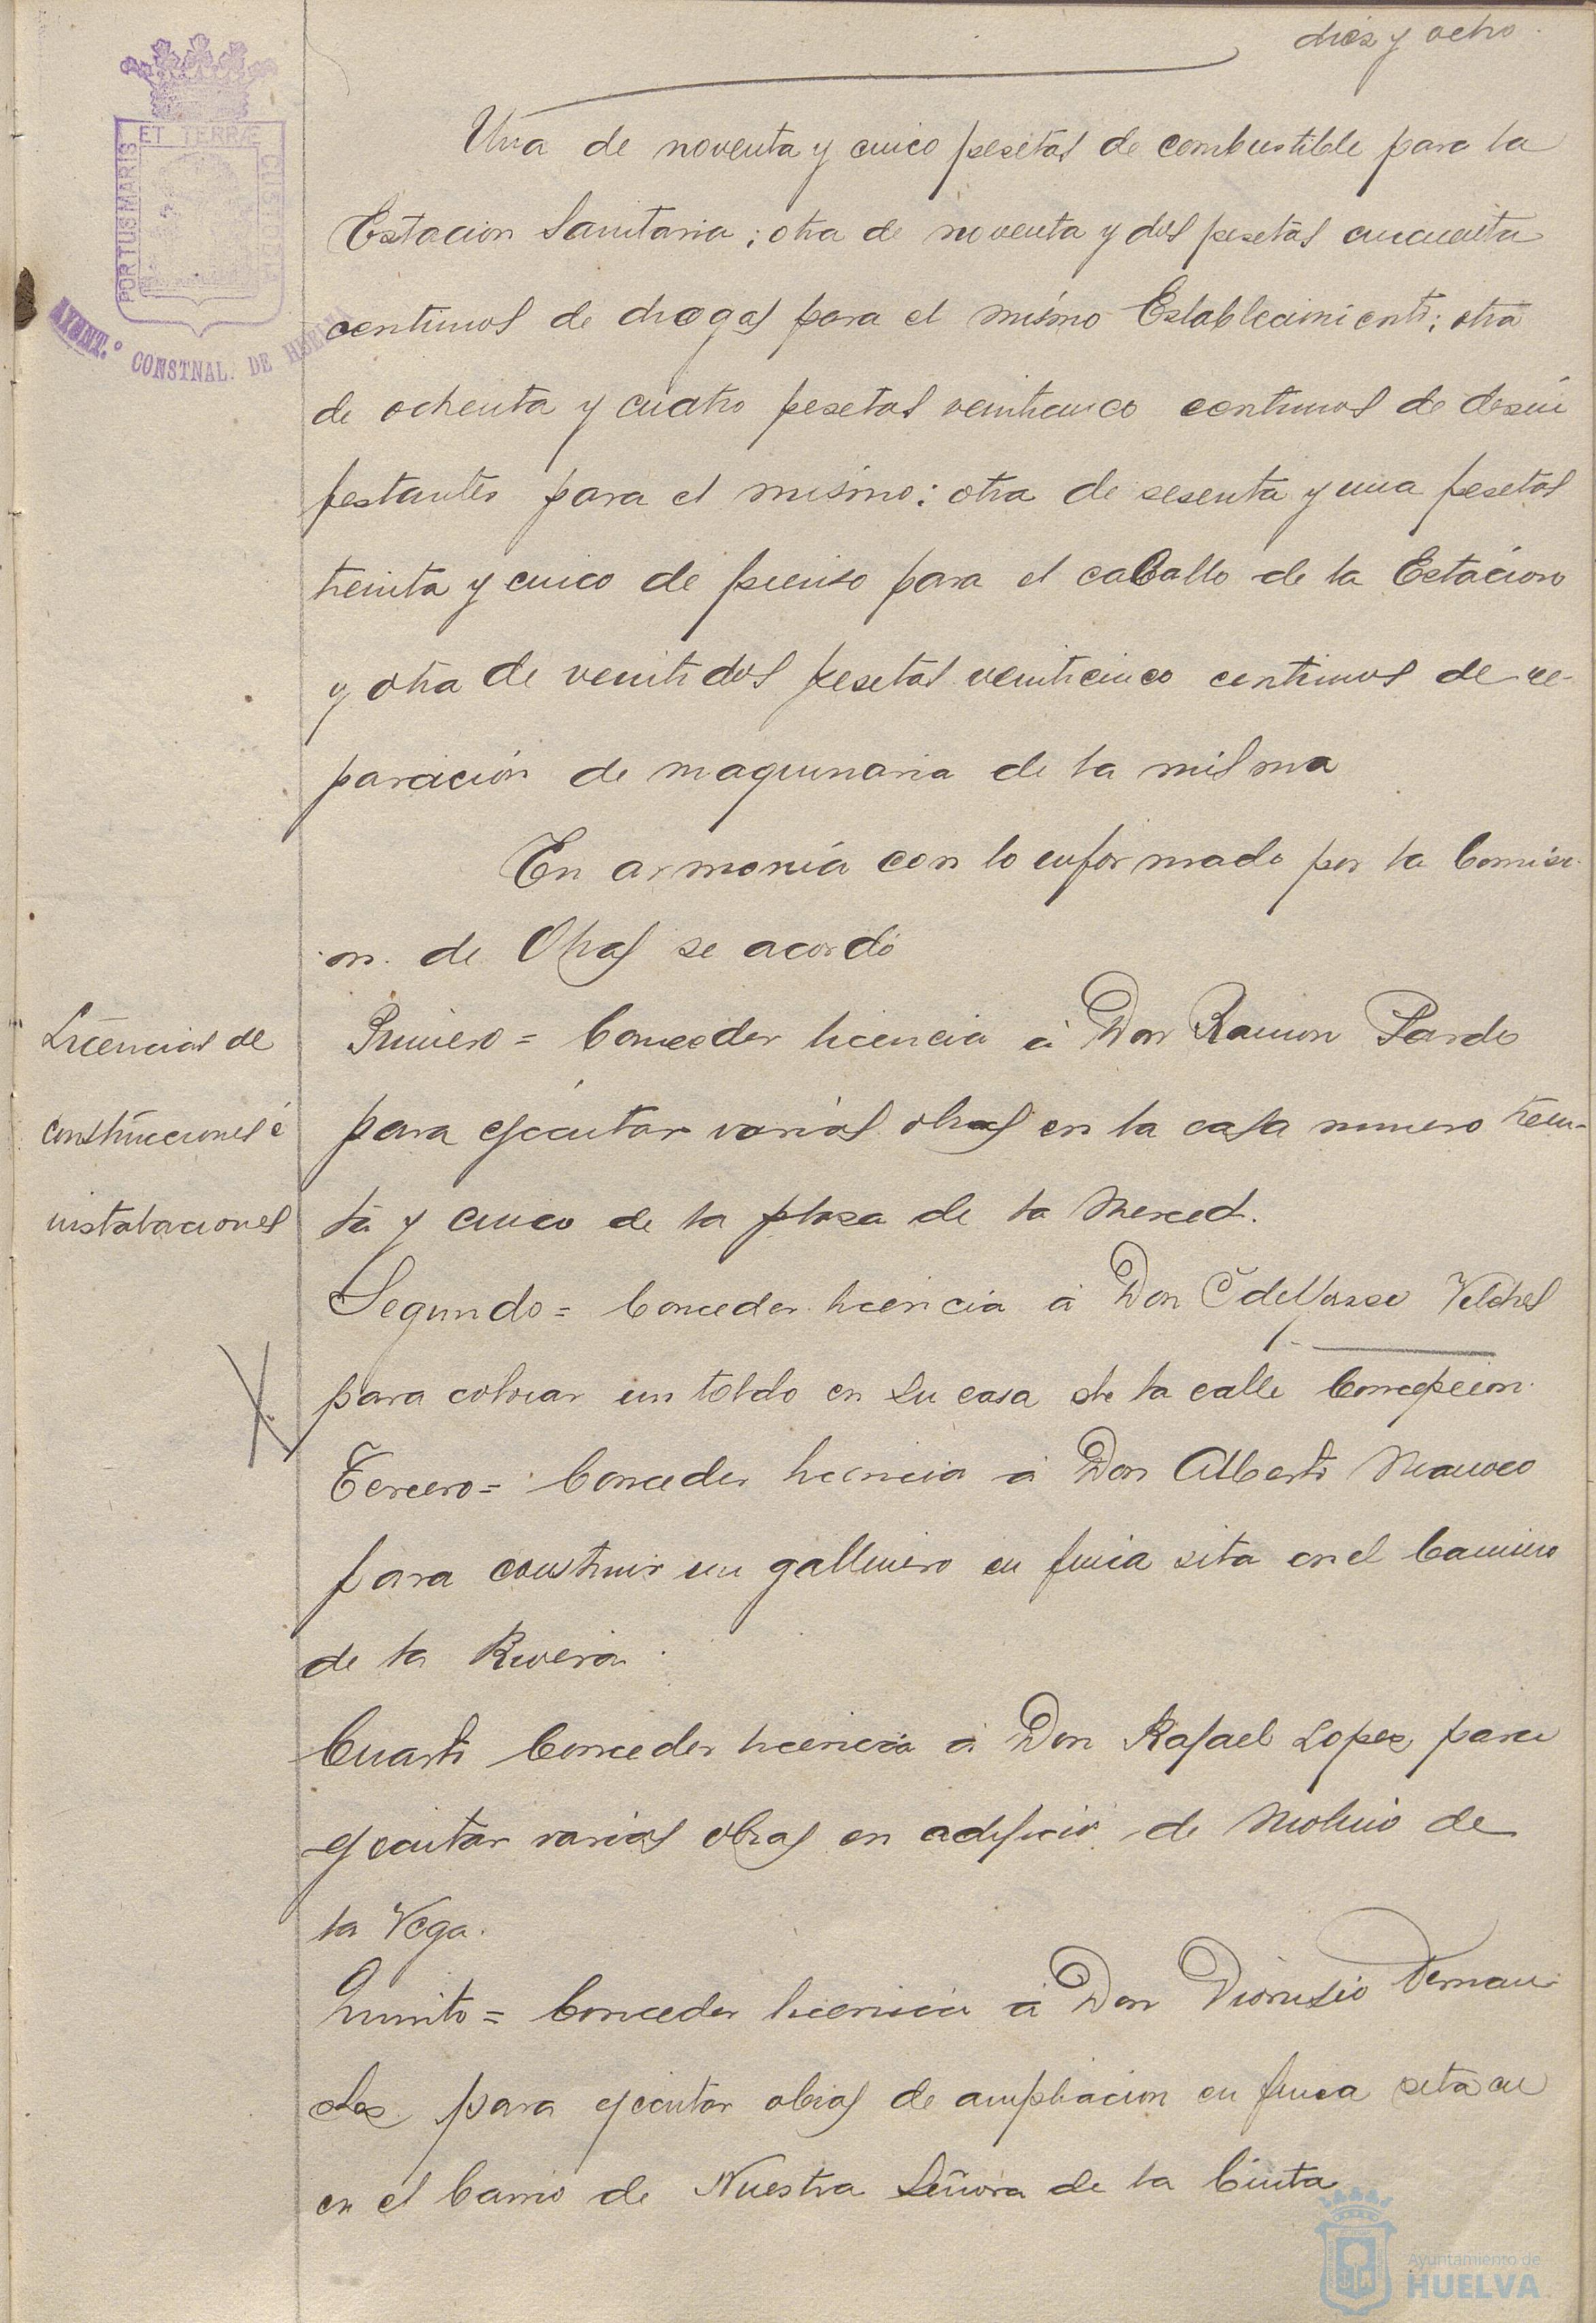 dies y ocho.
ET TERRÆ
PORTUS MARIS
CUSTODIA
AYUNT.º CONSTNAL. DE HUELVA
Una de noventa y cinco pesetas de combustible para la
Estacion Sanitaria; otra de noventa y dos pesetas cincuenta
centimos de drogas para el mismo Establecimiento; otra
de ochenta y cuatro pesetas veinticinco centimos de desin
festantes para el mismo; otra de sesenta y una pesetas
treinta y cinco de pienso para el caballo de la Estacion
y otra de veintidos pesetas veinticinco centimos de re-
paración de maquinaria de la misma
En armonía con lo informado por la Comisi-
on. de Obras se acordó
Licencias de
construcciones é
instalaciones
Primero = Conceder licencia á Don Ramon Pardo
para ejecutar varias obras en la casa numero trein-
ta y cinco de la plasa de la Merced.
Segundo = Conceder licencia á Don Ildefonso Vilches
para colocar un toldo en su casa de la calle Concepcion.
Tercero = Conceder licencia á Don Alberto
para construir un gallinero en finca sita en el Camino
de la Rivera.
Cuarto Conceder licencia á Don Rafael Lopez para
ejecutar varias obras en edificio de Molino de
la Vega.
Quinto = Conceder licencia á Don Dionisio Fernan
dez para ejecutar obras de ampliacion en finca sita en
en el barrio de Nuestra Señora de la Cinta
Ayuntamiento de
HUELVA